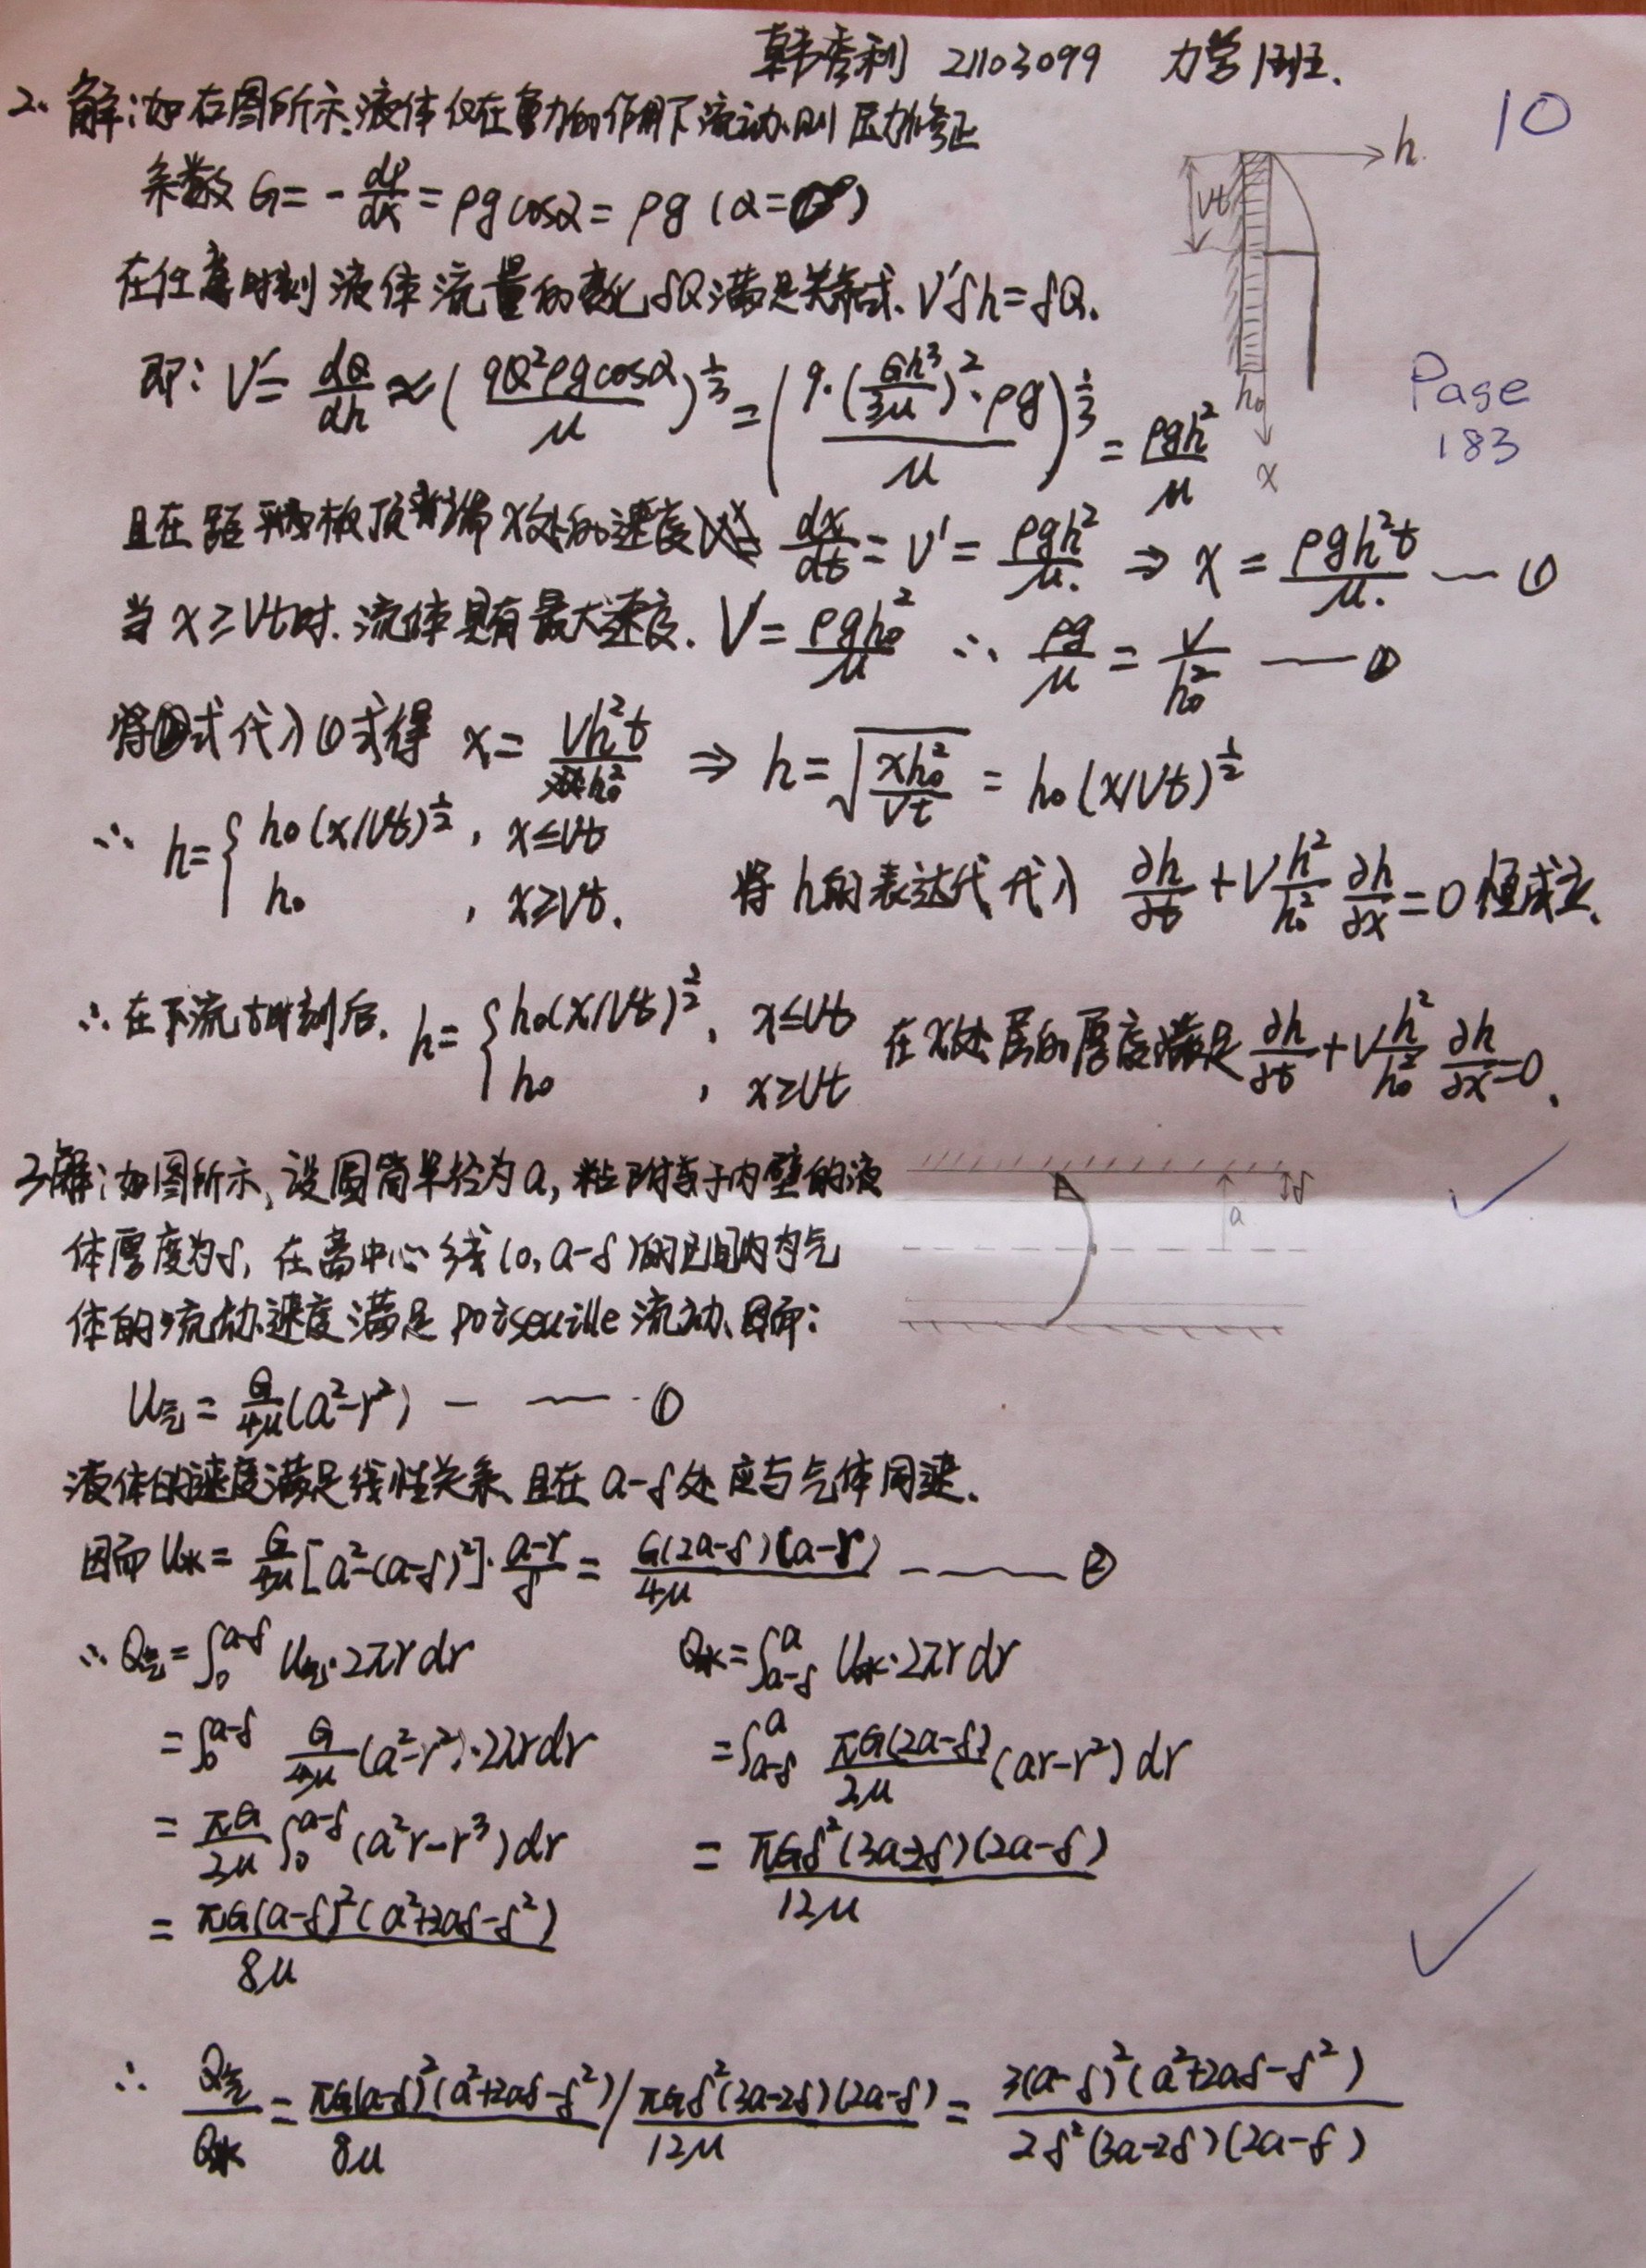 韩秀利 21103099 力学1班.
10
2. 解:如右图所示,液体仅在重力的作用下流动,则压力修正
系数 G = -dp/dx = ρg cosα = ρg (α=0°)
h
Vt
h₀
x
在任意时刻 液体流量的变化 δQ满足关系式. V'δh = δQ.
即: V' = dQ/dh ≈ (9Q²ρg cosα/μ)^(1/3) = (9·(Gh³/3μ)²·ρg/μ)^(1/3) = ρgh²/μ
Page
183
且在距平板顶端x处的速度 dx/dt = V' = ρgh²/μ. ⇒ x = ρgh²t/μ. —— ①
当 x ≥ Vt时. 流体具有最大速度. V = ρgh₀²/μ ∴ ρg/μ = V/h₀² —— ②
将②式代入①式得 x = Vh²t/h₀² ⇒ h = √(xh₀²/Vt) = h₀(x/Vt)^(1/2)
∴ h = { h₀(x/Vt)^(1/2), x≤Vt
h₀, x≥Vt.
将 h的表达式代入 ∂h/∂t + V h²/h₀² ∂h/∂x = 0 恒成立.
∴ 在下流t时刻后. h = { h₀(x/Vt)^(1/2), x≤Vt
h₀, x≥Vt
在x处层的厚度满足 ∂h/∂t + V h²/h₀² ∂h/∂x = 0.
3解:如图所示,设圆筒半径为a,粘附于内壁的液
体厚度为δ, 在离中心线(0, a-δ)的区间内为气
体的流动.速度满足 poiseuille 流动.因而:
δ
a
U气 = G/4μ (a²-r²) — —— ①
液体的速度满足线性关系,且在 a-δ处应与气体同速.
因而 U水 = G/4μ [a²-(a-δ)²]·(a-r)/δ = G(2a-δ)(a-r)/4μ —— ②
∴ Q气 = ∫₀^(a-δ) U气·2πr dr
= ∫₀^(a-δ) G/4μ (a²-r²)·2πr dr
= πG/2μ ∫₀^(a-δ) (a²r-r³) dr
= πG(a-δ)²(a²+2aδ-δ²)/8μ
Q水 = ∫_(a-δ)^a U水·2πr dr
= ∫_(a-δ)^a πG(2a-δ)/2μ (ar-r²) dr
= πGδ²(3a-2δ)(2a-δ)/12μ
∴ Q气/Q水 = πG(a-δ)²(a²+2aδ-δ²)/8μ / πGδ²(3a-2δ)(2a-δ)/12μ = 3(a-δ)²(a²+2aδ-δ²)/2δ²(3a-2δ)(2a-δ)